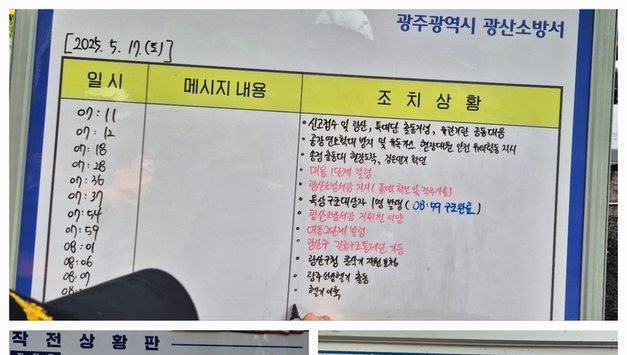 광주광역시 광산소방서
[2025. 5. 17.(토)]
일시 메시지 내용 조치상황
07:11 • 신고접수 및 광산, 특대단 출동지령, 유관기관 공동대응
07:12 • 출동 연소확대 방지 및 유독가스 현장대원 안전 지시
07:18 • 출동대 현장도착, 검은연기 확인
07:28 대응 1단계 발령
07:36 광산소방서장 지시(
07:37 • 구조대상자 1명 발생(08:59 구조완료)
07:54 • 광산소방서장 지휘권 이양
07:59 • 대응2단계 발령
08:01 • 광산구 긴급구조통제단 가동
08:06 • 광산구청 굴삭기 지원
08:07 • 광주소방헬기 출동
08: • 헬기 이륙
작전상황판